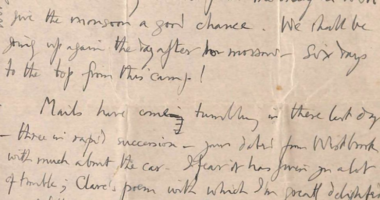 give the monsoon a good chance. We shall be
going up again the day after tomorrow – Six days
to the top from this camp!
Mails have coming tumbling in these last days
– three in rapid succession – yours dated from Westbrook
with much about the car. I fear it has given you a lot
of trouble; Clare's poem with which I'm greatly delighted